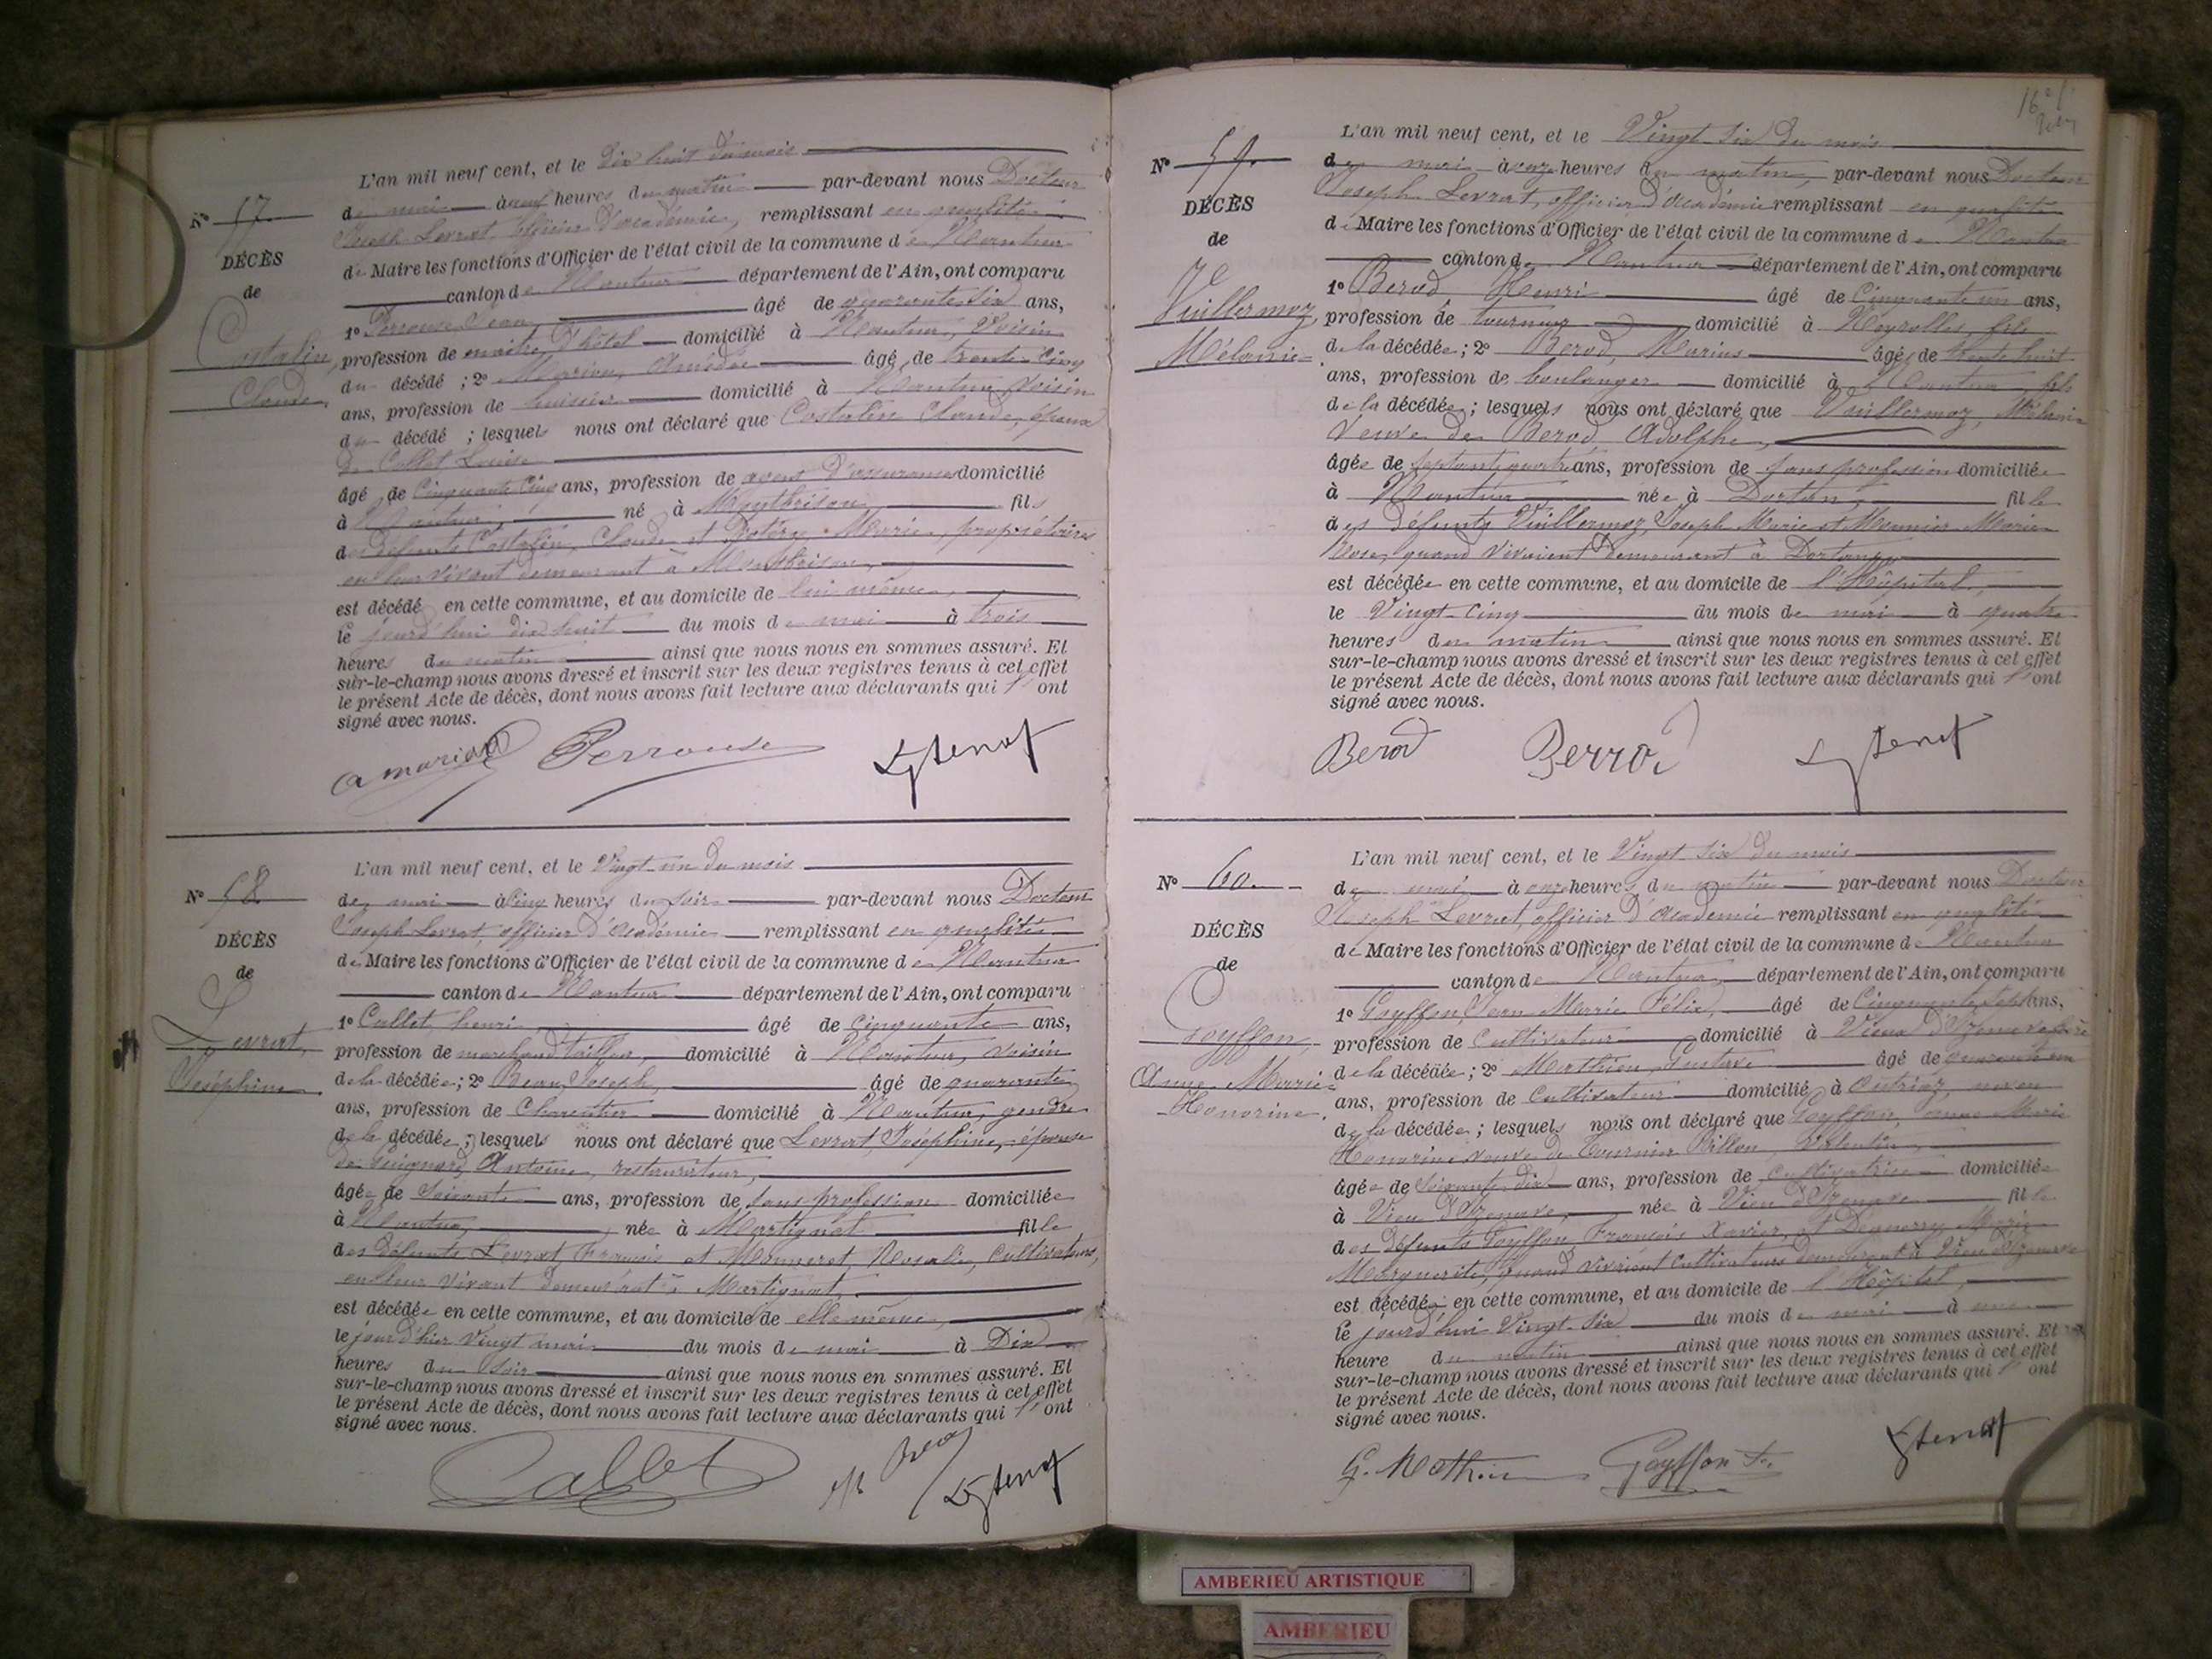 L'an mil neuf cent, et le Dix huit du mois
de mai à neuf heures du matin par-devant nous Docteur
Joseph Levrat, officier d'académie, remplissant en qualité
de Maire les fonctions d'Officier de l'état civil de la commune de Nantua
canton de Nantua département de l'Ain, ont comparu
1° Perrouse Jean âgé de quarante six ans,
profession de maître d'hôtel domicilié à Nantua, Voisin
du décédé ; 2° Marion, Amédée âgé de trente cinq
ans, profession de huissier domicilié à Nantua voisin
du décédé ; lesquels nous ont déclaré que Costalin Claude, époux
de Collet Louise
âgé de Cinquante cinq ans, profession de agent d'assurances domicilié
à Nantua, né à Montbrison fils
des défunts Costalin, Claude et Marie, propriétaires
en leur vivant demeurant à Montbrison,
est décédé en cette commune, et au domicile de lui même,
le jourd'hui dix huit du mois de mai à trois
heures du matin ainsi que nous nous en sommes assuré. Et
sur-le-champ nous avons dressé et inscrit sur les deux registres tenus à cet effet
le présent Acte de décès, dont nous avons fait lecture aux déclarants qui l'ont
signé avec nous.
N° 57.
DÉCÈS
de
Costalin,
Claude,
a marion Perrouse
L'an mil neuf cent, et le Vingt-un du mois
de mai à Cinq heures du soir par-devant nous Docteur
Joseph Levrat, officier d'académie remplissant en qualité
de Maire les fonctions d'Officier de l'état civil de la commune de Nantua
canton de Nantua département de l'Ain, ont comparu
1° Callet, henri âgé de Cinquante ans,
profession de marchand tailleur, domicilié à Nantua, voisin
de la décédée ; 2° Beau, Joseph, âgé de quarante
ans, profession de Charcutier domicilié à Nantua, gendre
de la décédée ; lesquels nous ont déclaré que Levrat, Joséphine, épouse
de Guignard, Antoine, restaurateur,
âgée de Soixante ans, profession de sans profession domiciliée
à Nantua, née à Martignat fille
des défunts Levrat, François et Monneret, Rosalie, Cultivateurs,
en leur vivant demeurant à Martignat,
est décédée en cette commune, et au domicile de elle même,
le jour d'hier vingt mai du mois de mai à Dix
heures du soir ainsi que nous nous en sommes assuré. Et
sur-le-champ nous avons dressé et inscrit sur les deux registres tenus à cet effet
le présent Acte de décès, dont nous avons fait lecture aux déclarants qui l'ont
signé avec nous.
N° 58
DÉCÈS
de
Levrat,
Joséphine
Callet
L'an mil neuf cent, et le Vingt-six du mois
de mai à onze heures du matin, par-devant nous Docteur
Joseph Levrat, officier d'académie remplissant en qualité
de Maire les fonctions d'Officier de l'état civil de la commune de Nantua
canton de Nantua département de l'Ain, ont comparu
1° Berod Henri âgé de Cinquante un ans,
profession de tourneur domicilié à Neyrolles, fils
de la décédée ; 2° Berod, Marius âgé de trente huit
ans, profession de boulanger domicilié à Nantua, fils
de la décédée ; lesquels nous ont déclaré que Vuillermoz, Mélanie
veuve de Berod Adolphe,
âgée de septante quatre ans, profession de sans profession domiciliée
à Nantua née à Dortan, fille
des défunts Vuillermoz, Joseph Marie et Monnier Marie
Rose, quand vivaient demeurant à Dortan,
est décédée en cette commune, et au domicile de l'Hôpital,
le Vingt-cinq du mois de mai à quatre
heures du matin ainsi que nous nous en sommes assuré. Et
sur-le-champ nous avons dressé et inscrit sur les deux registres tenus à cet effet
le présent Acte de décès, dont nous avons fait lecture aux déclarants qui l'ont
signé avec nous.
N° 59.
DÉCÈS
de
Vuillermoz,
Mélanie
Berod Berrod
L'an mil neuf cent, et le Vingt-six du mois
de mai à onze heures du matin par-devant nous Docteur
Joseph Levrat, officier d'académie remplissant en qualité
de Maire les fonctions d'Officier de l'état civil de la commune de Nantua
canton de Nantua, département de l'Ain, ont comparu
1° Goyffon, Jean Marie Félix, âgé de Cinquante sept ans,
profession de Cultivateur domicilié à Vieu d'Izenave frère
de la décédée ; 2° Matthieu Gustave âgé de quarante un
ans, profession de Cultivateur domicilié à Outriaz, neveu
de la décédée ; lesquels nous ont déclaré que Goyffon, anne Marie
Honorine veuve de Tournier Billon,
âgée de soixante dix ans, profession de cultivatrice domiciliée
à Vieu d'Izenave, née à Vieu d'Izenave fille
des défunts Goyffon, François Xavier, et Marie
Marguerite, quand vivaient Cultivateurs demeurant à Vieu d'Izenave
est décédée en cette commune, et au domicile de l'Hôpital,
le jourd'hui Vingt-six du mois de mai à une
heure du matin ainsi que nous nous en sommes assuré. Et
sur-le-champ nous avons dressé et inscrit sur les deux registres tenus à cet effet
le présent Acte de décès, dont nous avons fait lecture aux déclarants qui l'ont
signé avec nous.
N° 60.
DÉCÈS
de
Goyffon,
Anne Marie
Honorine.
G. Mathieu Goyffon
AMBERIEU ARTISTIQUE
AMBERIEU